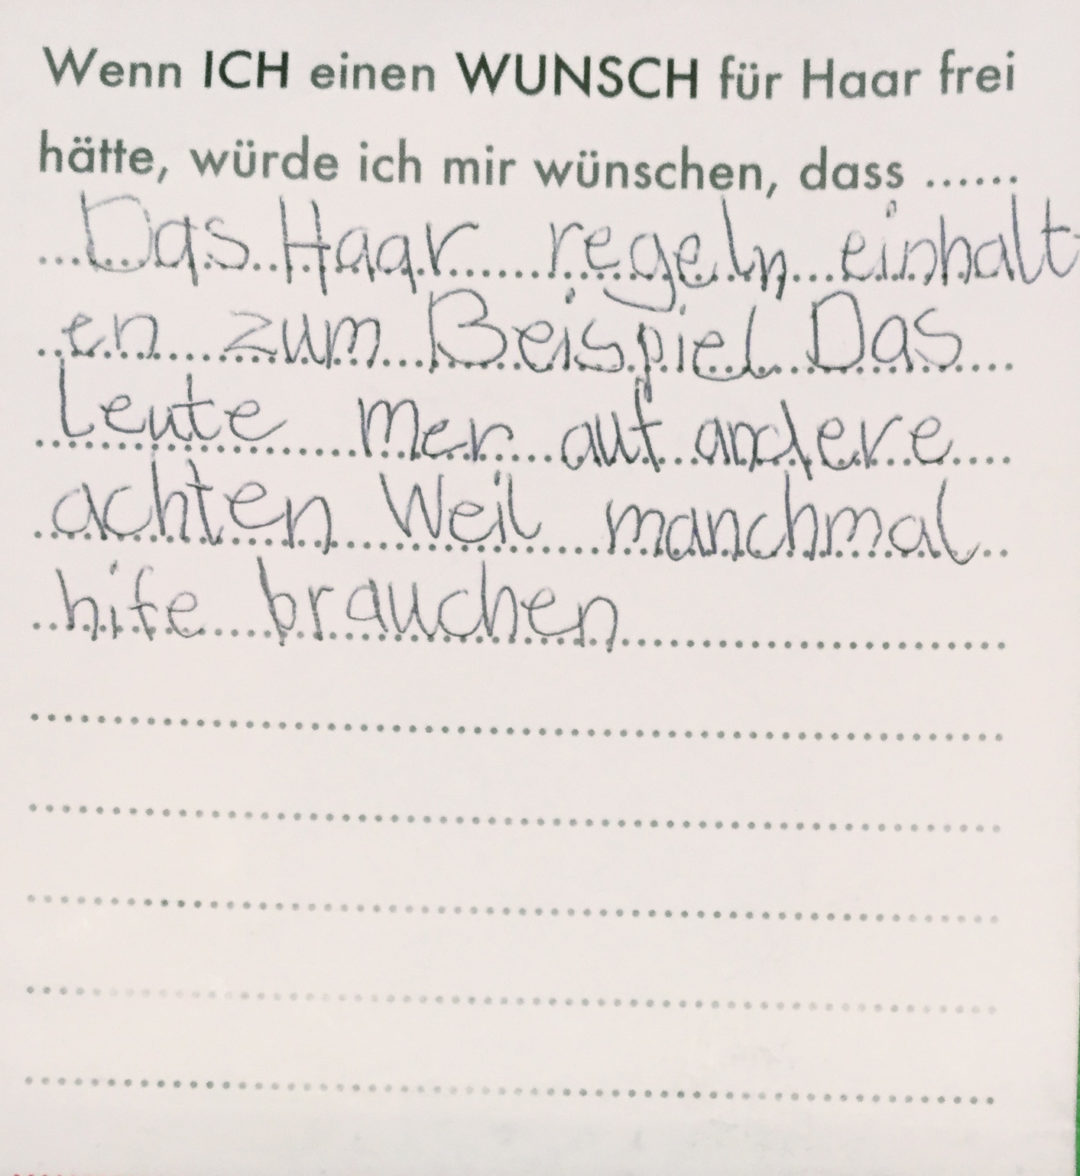 Wenn ICH einen WUNSCH für Haar frei
hätte, würde ich mir wünschen, dass ......
Das Haar regeln einhalt-
en zum Beispiel Das
Leute mer auf andere
achten Weil manchmal
hife brauchen